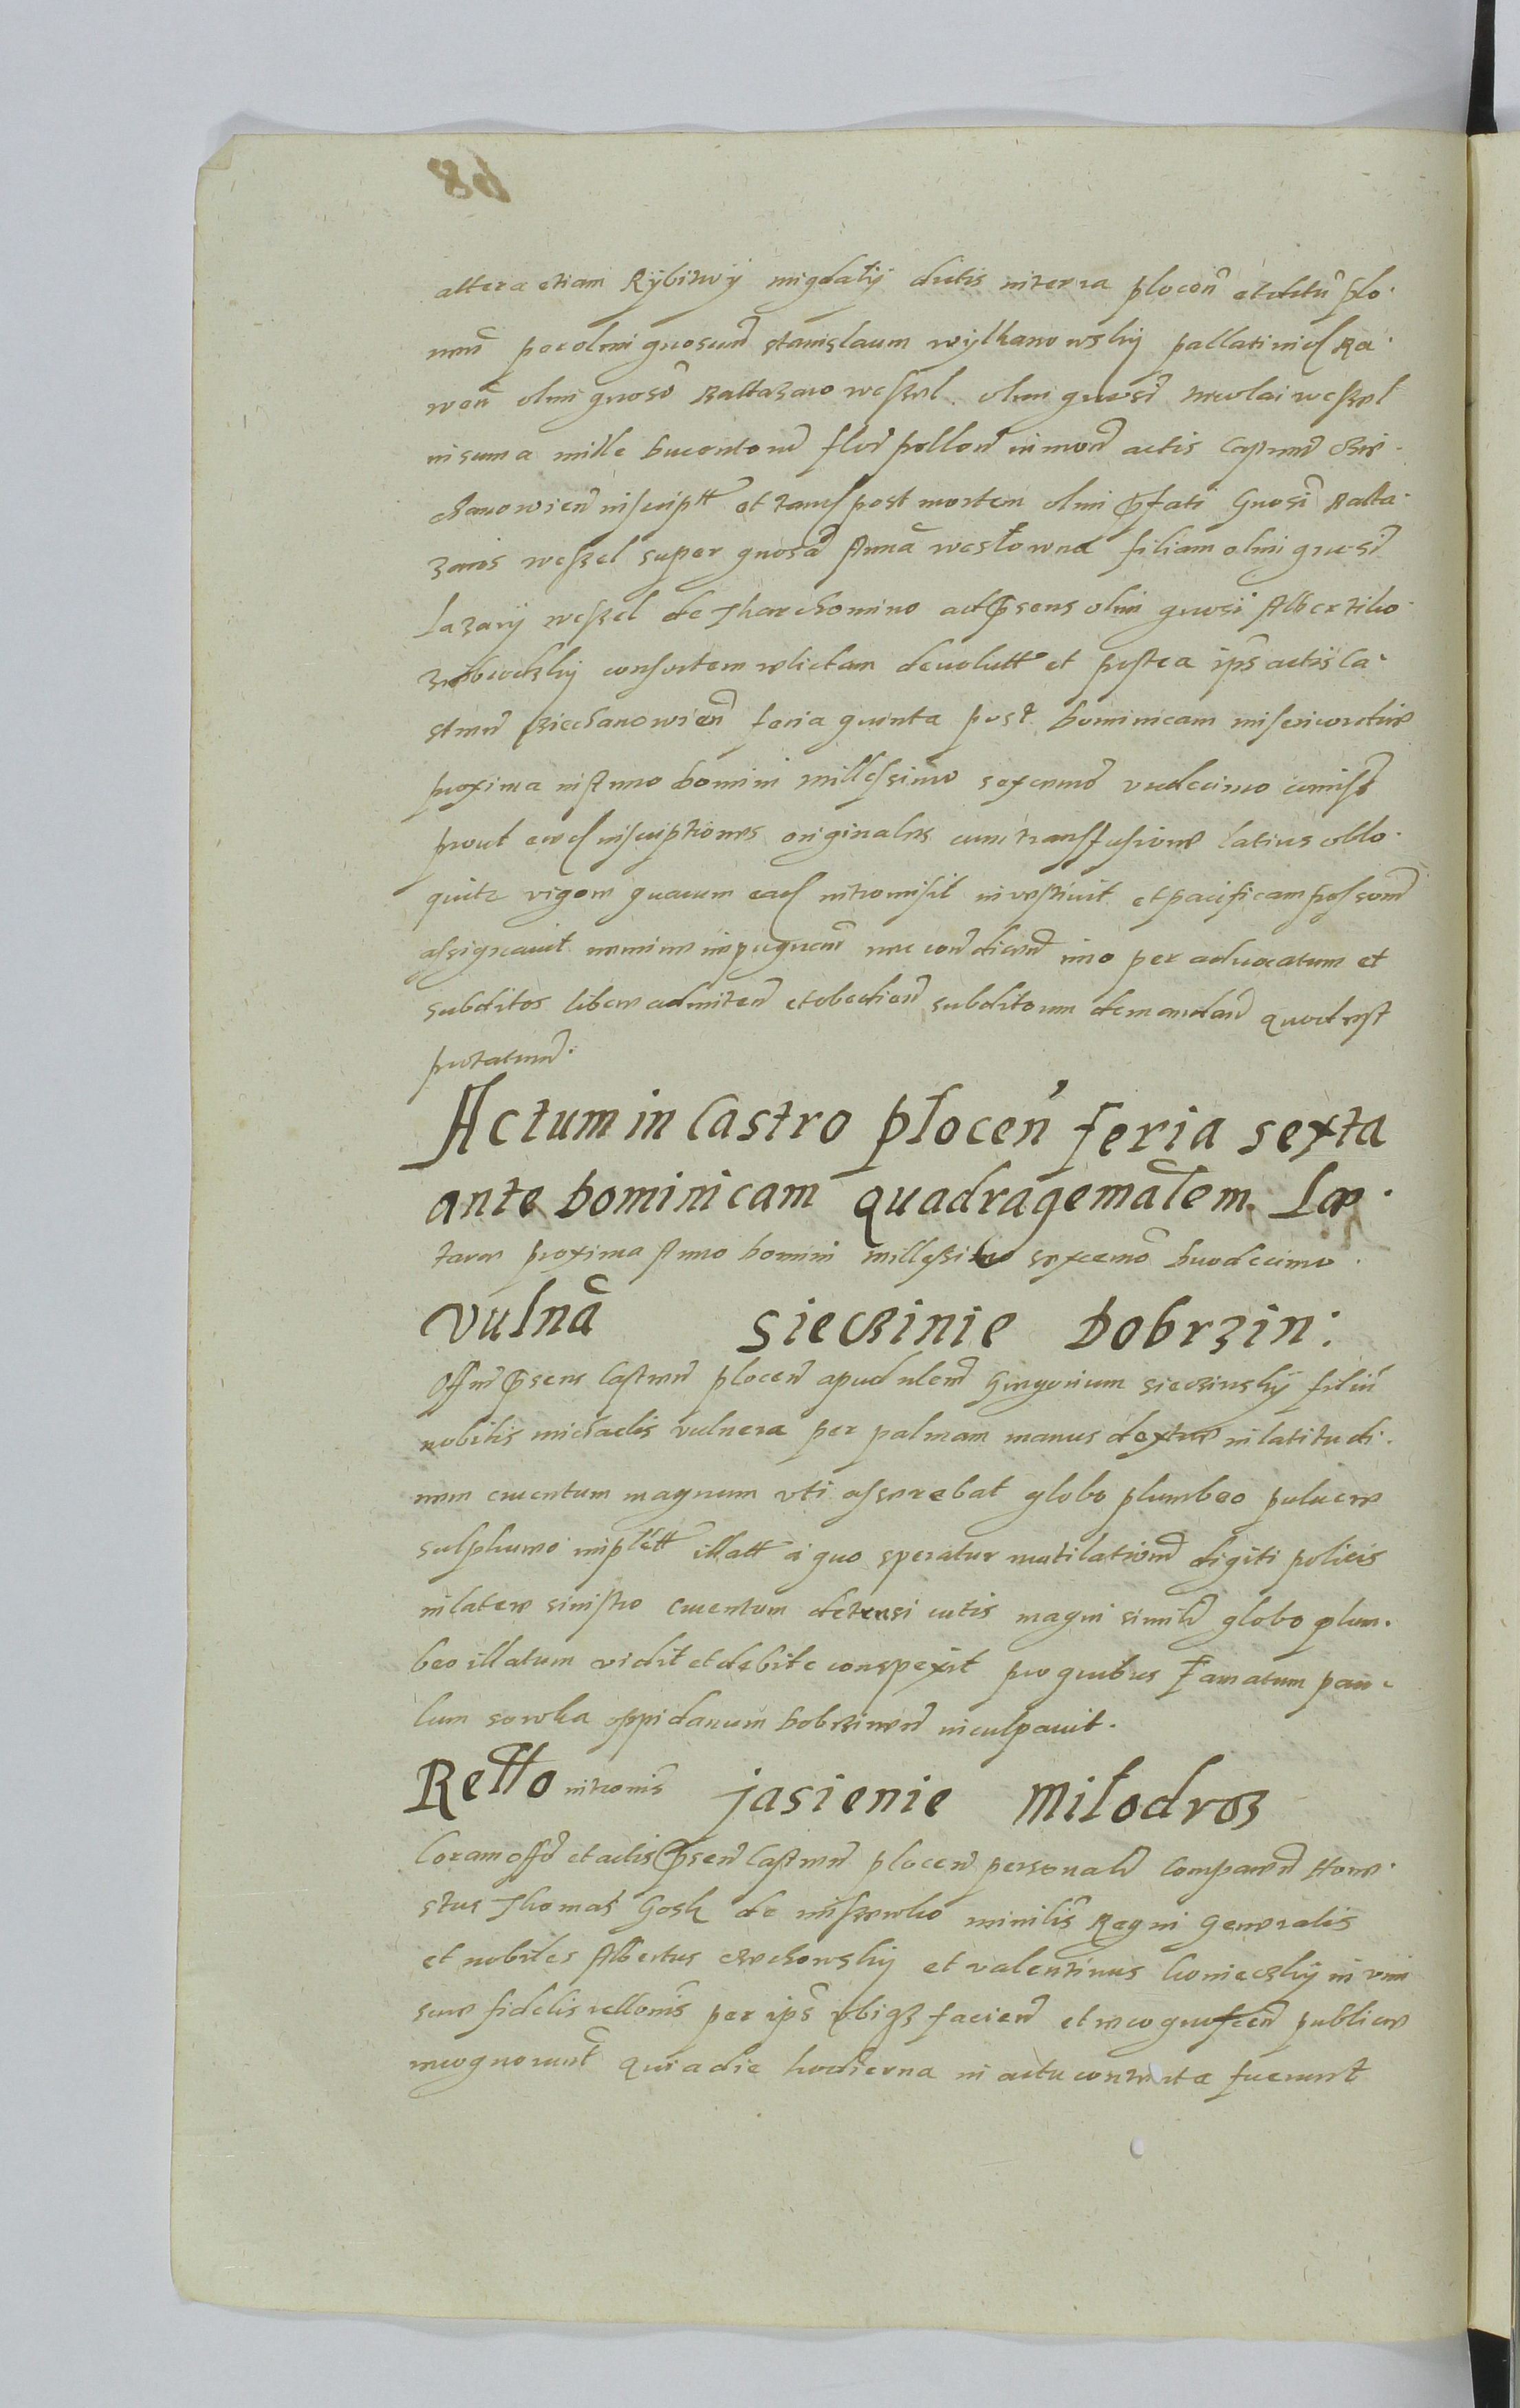 altera etiam Rÿbitwÿ migdalÿ dictis in terra plocen̄ et dictu
per olim gnosum stanislaum wÿlkanowskÿ pallatinid Ra·
wen̄ olim gnoso Baltazaro weszel olim gnosi nicolai weszel
in suma mille ducentorum flor pollon in mon actis Castren Cie·
chanowien inscript et tand post mortem olim pfati Gnosi Balta·
zaris weszel super gnosa Anna wesłowna filiam olim gnosi
Lazarÿ weszel de Tharchomino ad psens olim gnosi Alberti
consortem relictam devolutt et postea ips actis Ca·
stren Ciechanowien feria quinta post dominicam misericordiae
proxima in Anno domini millessimo sexcenmo undecimo
prout eaed inscriptiones originales cum transfusione latius oblo·
quitr vigore quarum ead intromisit investivit et pacificam possom
assignavit nemine impugnan nec con dicen imo per advocatum et
subditos libere admiten et obedien subditorum demandan quod est
putatum·
Actum in Castro płocen̄ feria sexta
ante dominicam quadragemalem. Lae·
tare proxima Anno domini millessimo sexcenmo duodecimo
vulna̅ sieczinie Dobrzin:
Offm psens Castren plocen apud nlem Gregorium sieczinskÿ filiu
nobilis michaelis vulnera per palmam manus dextrae in latitudi·
nem cruentum magnum uti asserebat globo plumbeo pulvere
sulphureo implett illatt a quo speratur mutilationem digiti policis
in latere sinistro cruentum detensi cutis magni simili globo plum·
beo illatum vidit et debite conspexit pro quibus Famatum pau·
lum sowka oppidanum dobrzinen inculpavit.
Retto intromis jasienie Miłodroz
Coram offo et actis psen Castren plocen personalr Comparen Hone·
stus Thomas Gosk de miszewko ministr Regni Generalis
et nobiles Albertus et valentinus koniecskÿ in vim
suae fidelis rellonis per ips ubiq3 facien et recognoscen publice
recognorunt Quia die hodierna in actu contenta fuerunt